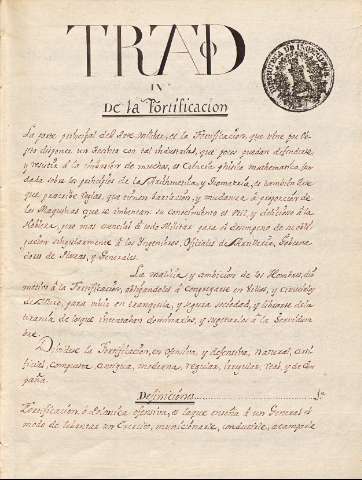 TRAD
IV
De la Fortificacion
La parte principal del Arte militar, es la Fortificacion, que tiene por ob-
jeto disponer un Sertica con tal industria, que pocos puedan defenderse
y resistir à la imbasion de muchos, es Ciencia phisico mathematica fun-
dada sobre los principios de la Arithmetica, y Geometria, es tambien Arte
que prescribe reglas, que tienen variacion, y mudanza à proporcion de
las Maquinas que se imbentan: su conocimiento es util, y delicioso à la
Nobleza, pero mas esencial à todo Militar para el desempeño de su obli-
gacion singularmente à los Ingenieros, Oficiales de Artilleria, Gobernado-
dores de Plazas, y Generales.
La malicia y ambicion de los Hombres, dió
motivo à la Fortificacion, obligandolos à Congregarse en Villas, y Ciudades
para vivir en tranquila, y segura sociedad, y librarse de la
tirania de los que intentaban dominarlos, y sugetarlos à la Servidum-
bre.
Dividese la Fortificacion, en ofensiva, y defensiva, natural, arti-
ficial, compuesta, antigua, moderna, regular, irregular, real, y de Cam-
paña.
Definiciones 1ª
Fortificacion, ò Polemica ofensiva, es la que enseña à un General el
modo de libertar un Exercito, municionarle, conducirle, acamparle